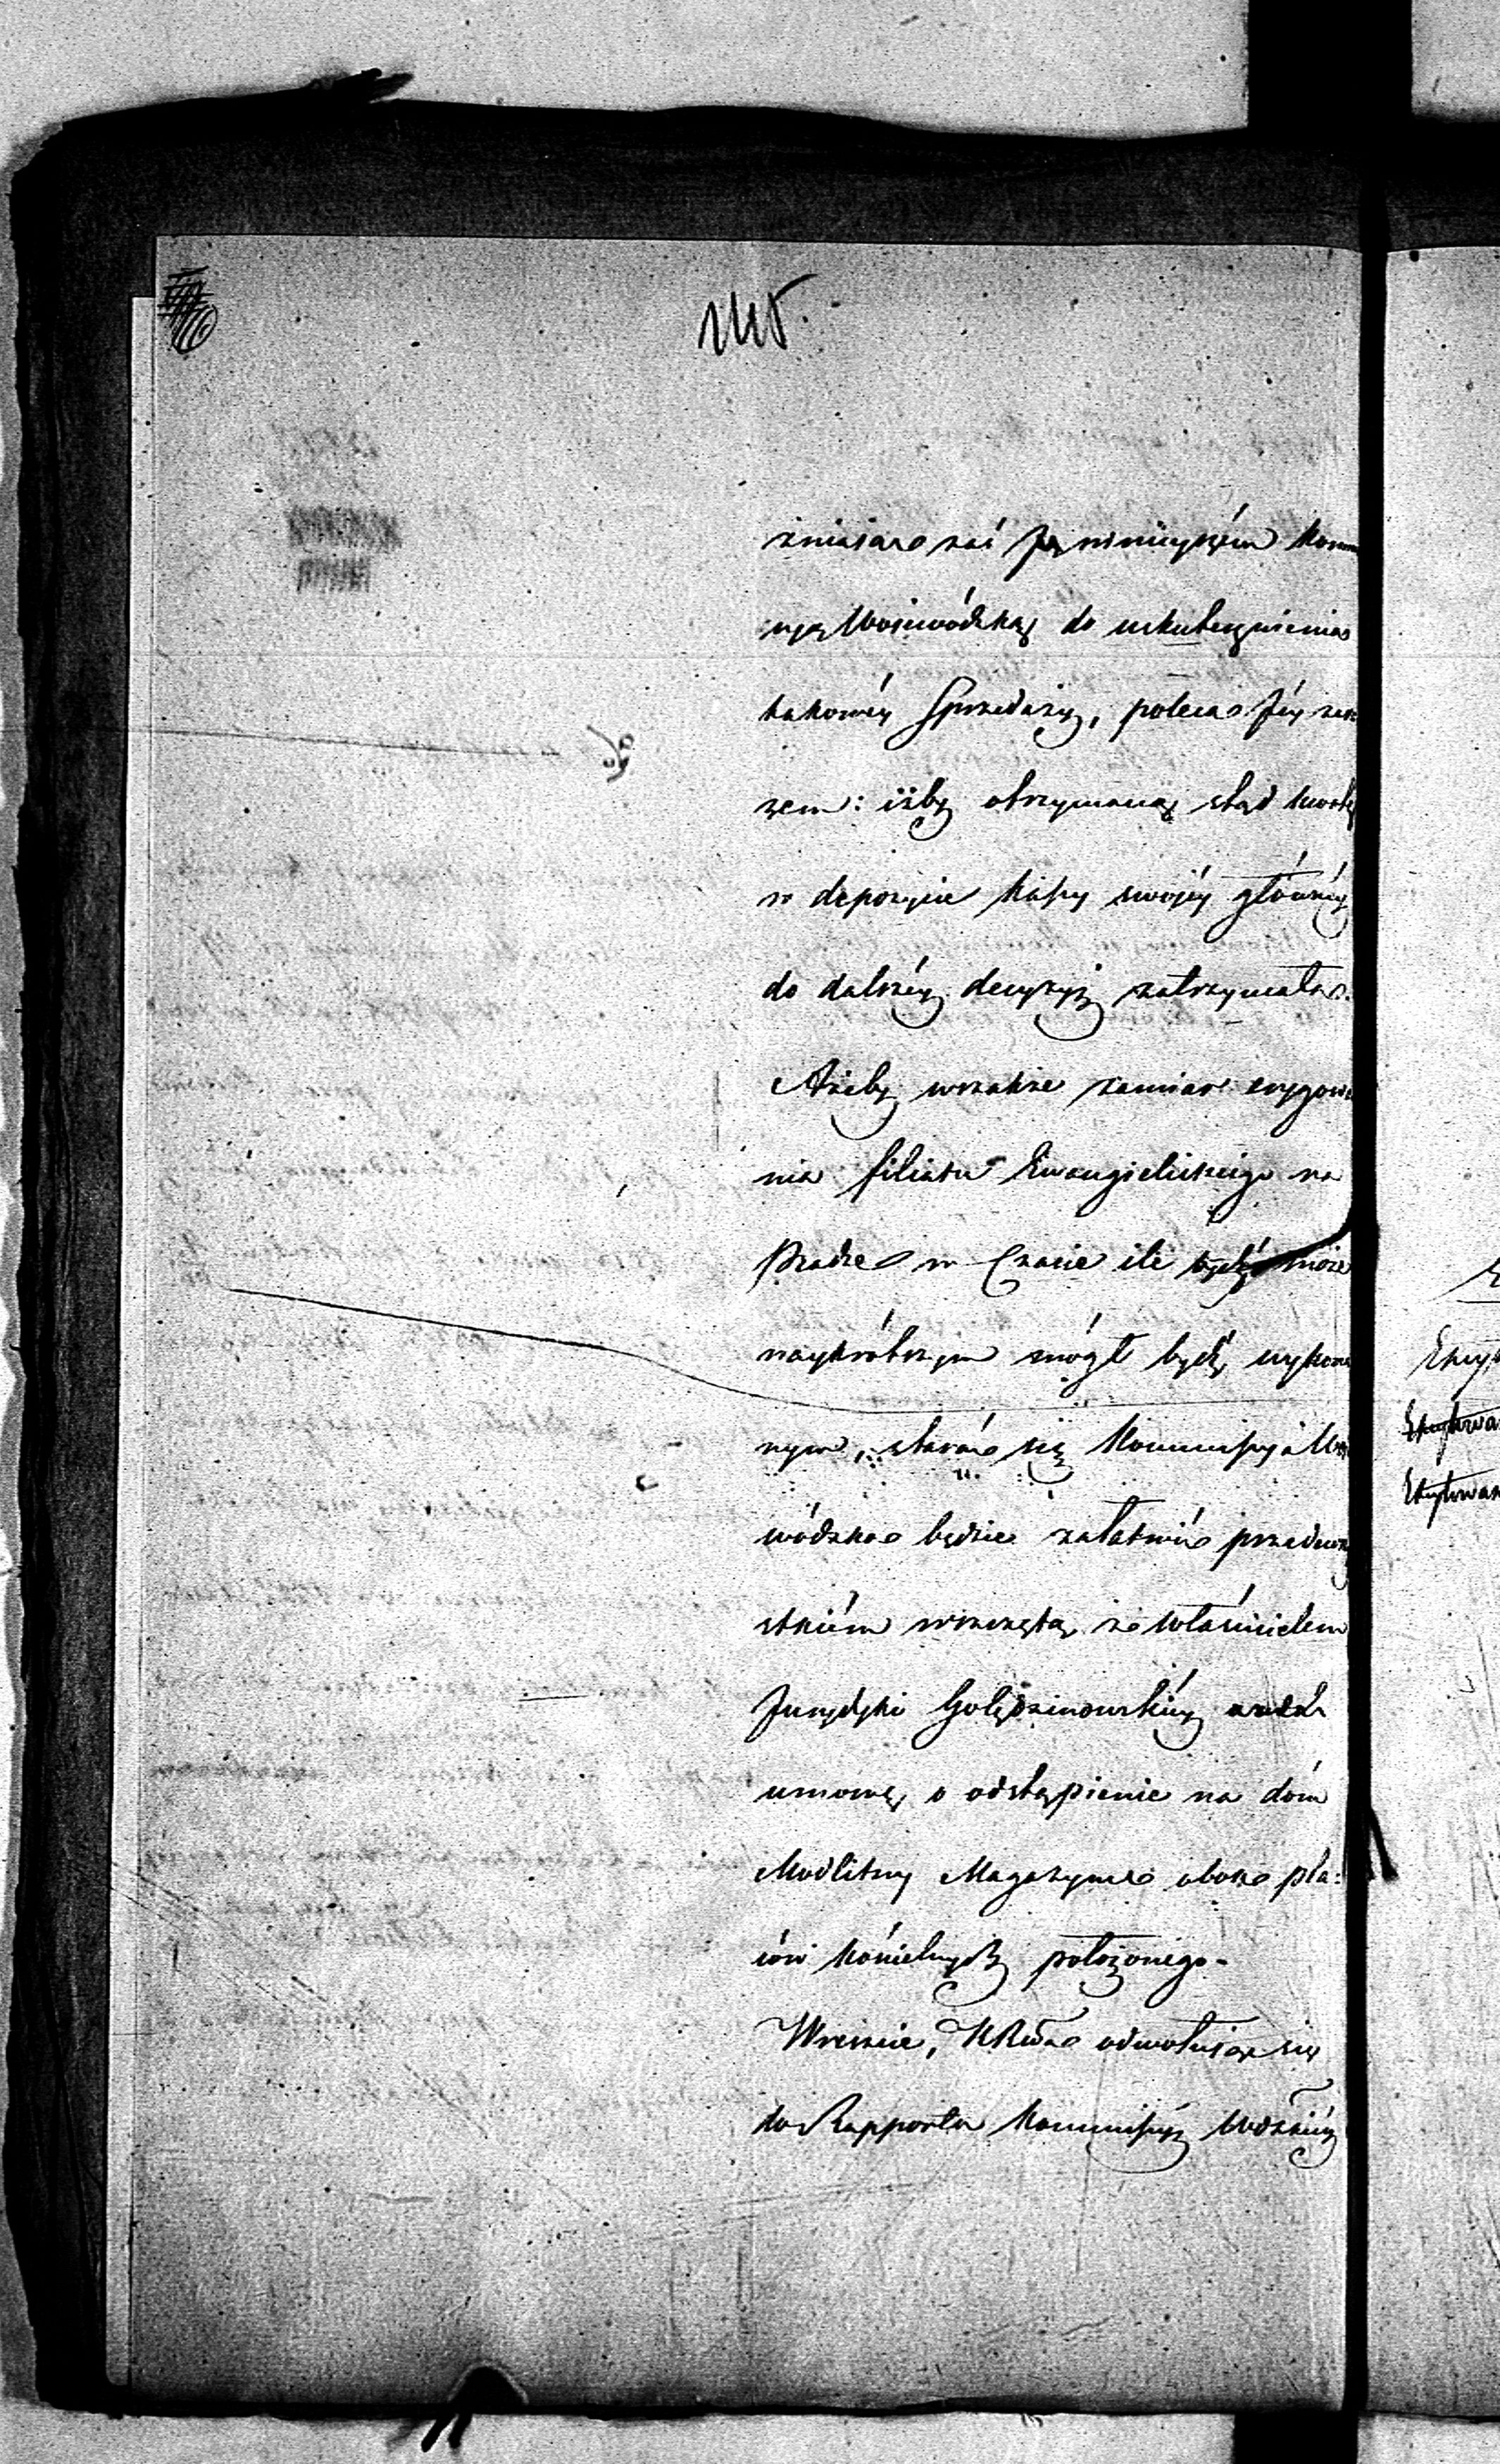 zaś niniejszém Komm
ssyą Woiewódzką do uskutecznienia
takowéy Sprzedaży, poleca Jéy zara
zem: iżby otrzymaną ztąd kwotę
w depozycie Kassy swojéy głównéy
do dalszéy decyzyi zatrzymała.
Ażeby wszakże zamiar erygowa
nia filiału Ewangielickiego na
Pradze w Czasie ile bydź może
naykrótszym mógł bydź wykona
nym, starać się Kommissyia Woie
wódzka będzie załatwić przedewszy
stkiém wszczętą z właścicielem
Jurydyki Golędzinowskiéy
umowę o odstąpienie na dóm
Modlitwy Magazynu obok pla:
ców kościelnych położonego-
Wreszcie, odwołując się
do Rapportu Kommissyi Wdzkiéy